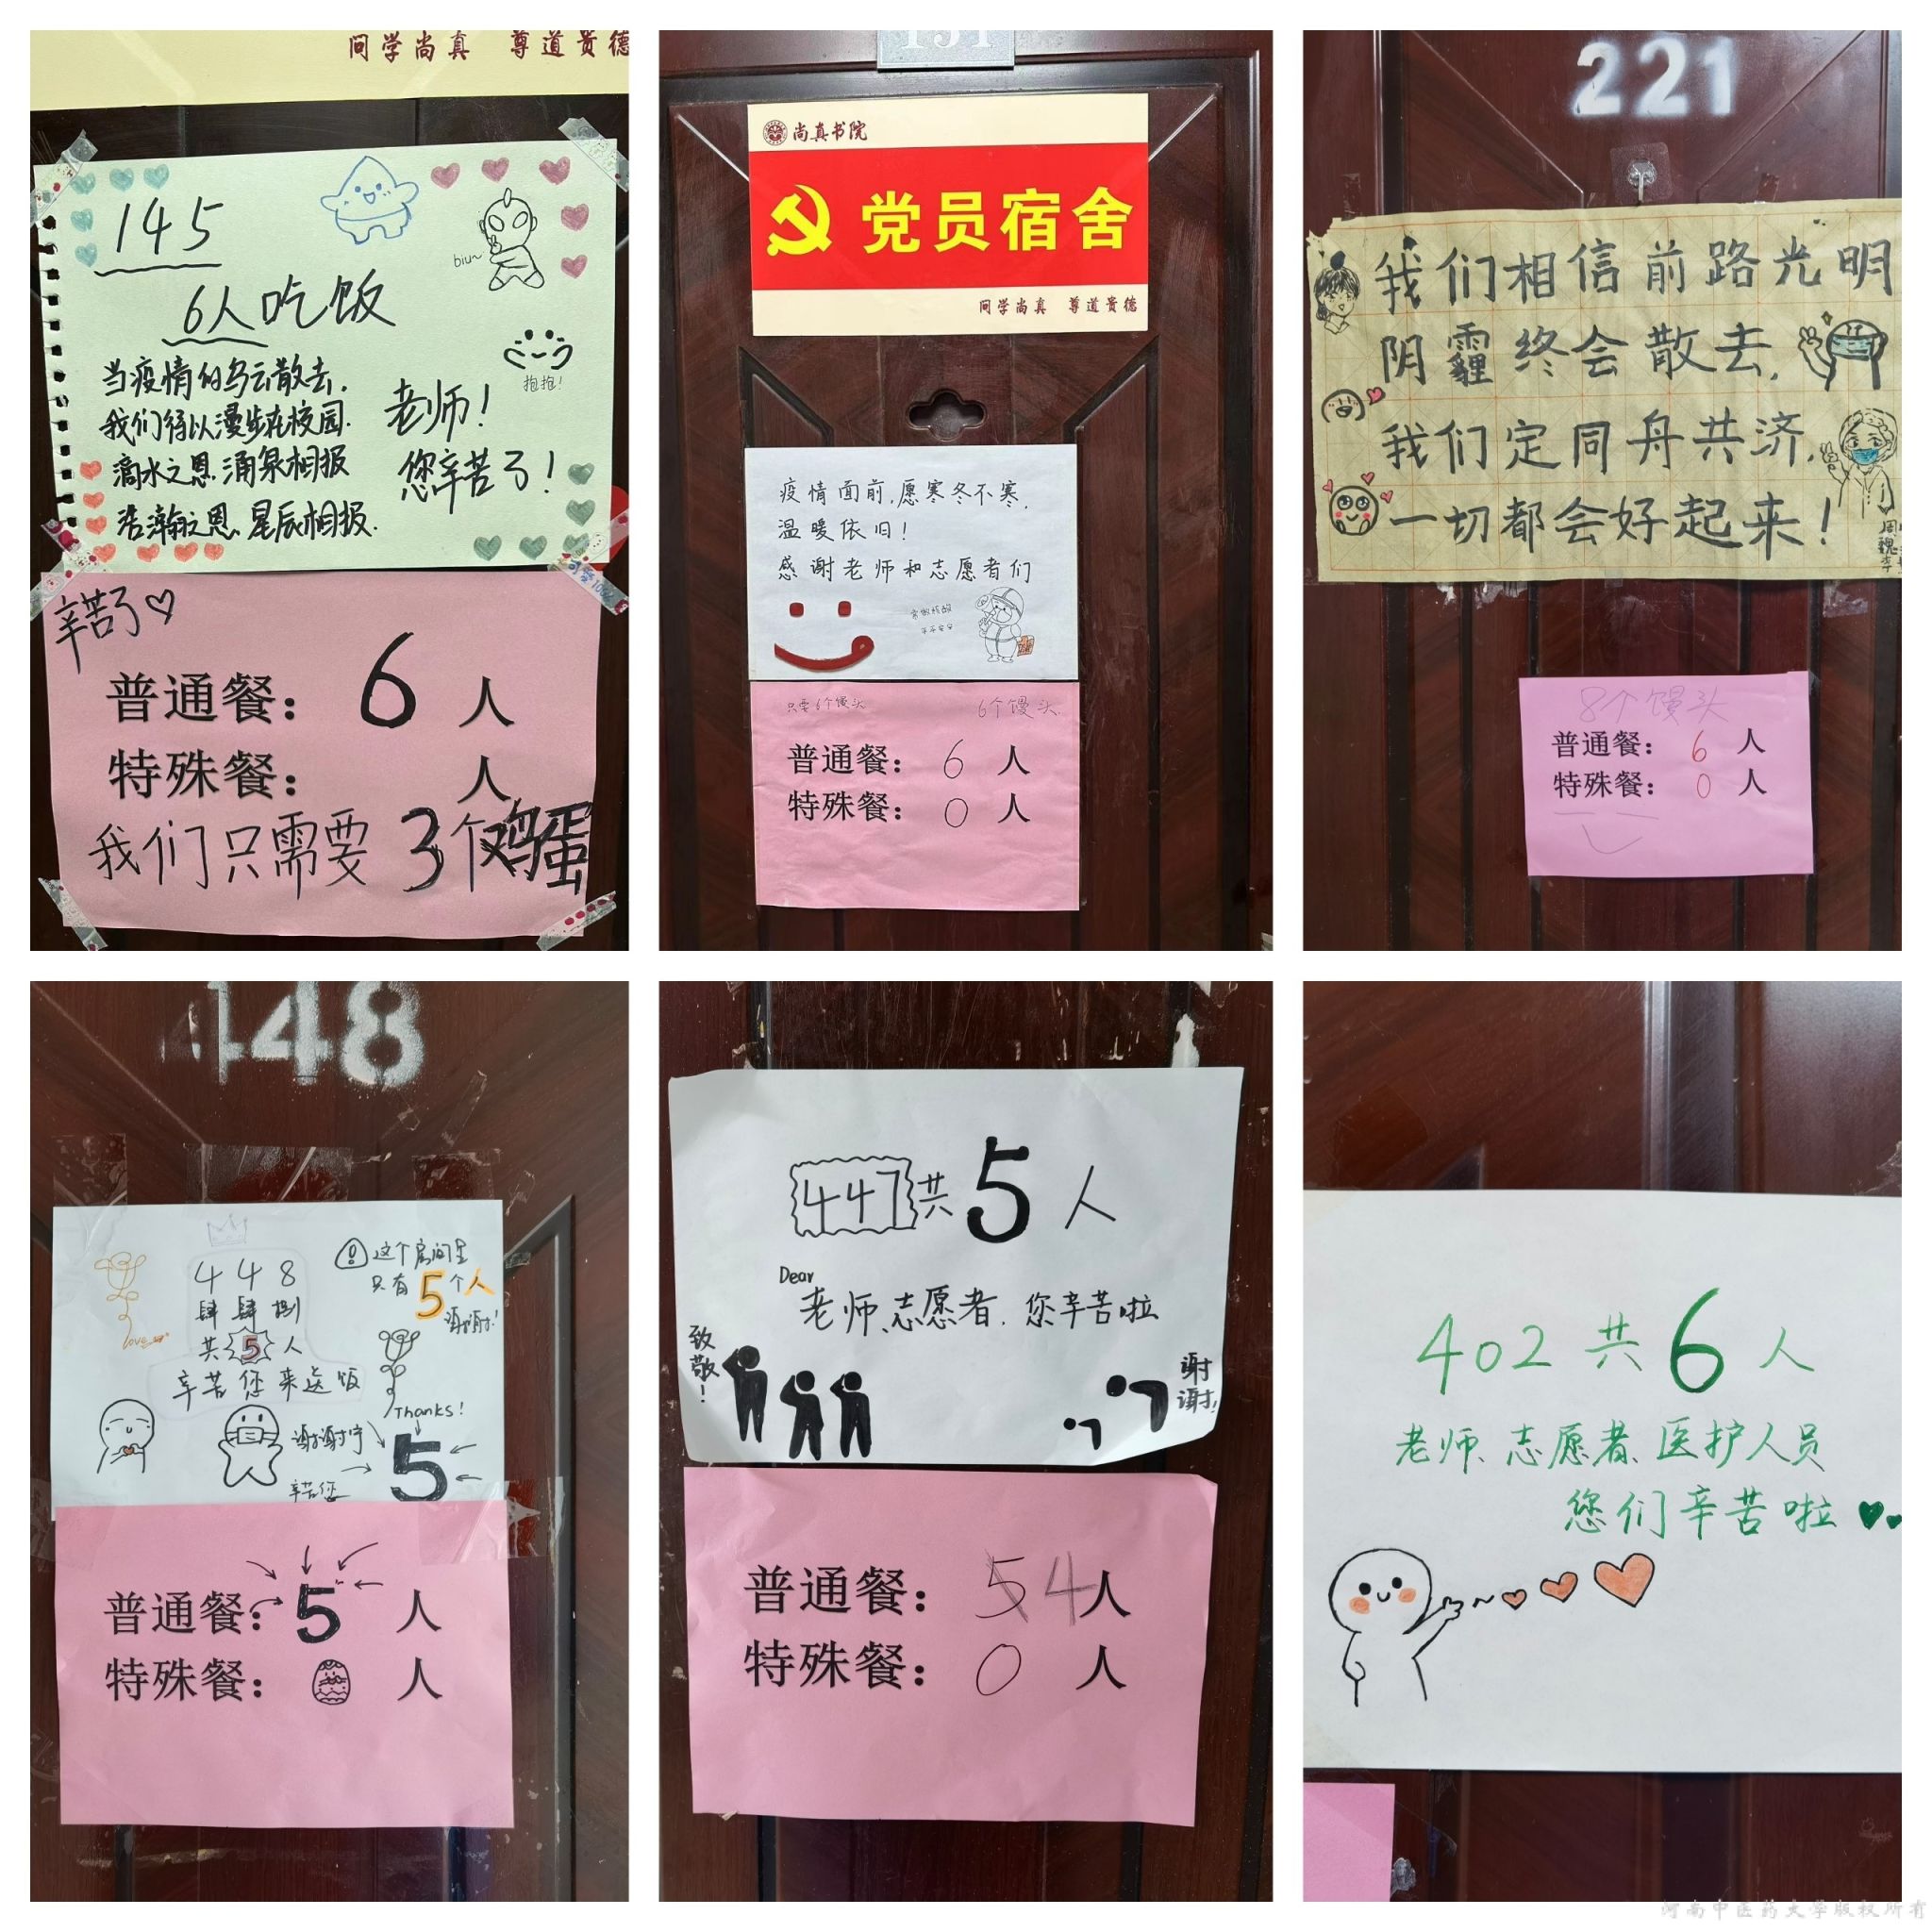 问学尚真 尊道贵德
145
6人吃饭
biu~
抱抱!
当疫情的乌云散去.
我们得以漫步在校园.
滴水之恩 涌泉相报
浩瀚之恩 星辰相报.
老师!
您辛苦了!
辛苦了♡
普通餐: 6 人
特殊餐: 人
我们只需要 3个鸡蛋
151
尚真书院
党员宿舍
问学尚真 尊道贵德
疫情面前,愿寒冬不寒,
温暖依旧!
感谢老师和志愿者们
常做核酸
平平安安
只要6个馒头
6个馒头
普通餐: 6 人
特殊餐: 0 人
221
我们相信前路光明
阴霾终会散去,
我们定同舟共济,
一切都会好起来!
8个馒头
普通餐: 6 人
特殊餐: 0 人
448
448
肆肆捌
共5人
辛苦您来送饭
这个房间里
只有5个人
谢谢!
love
Thanks!
谢谢您
辛苦您
5
普通餐: 5 人
特殊餐: 人
447共5人
Dear
老师、志愿者.您辛苦啦
致敬!
谢谢!
普通餐: 54人
特殊餐: 0 人
402共6人
老师、志愿者、医护人员
您们辛苦啦
河南中医药大学版权所有